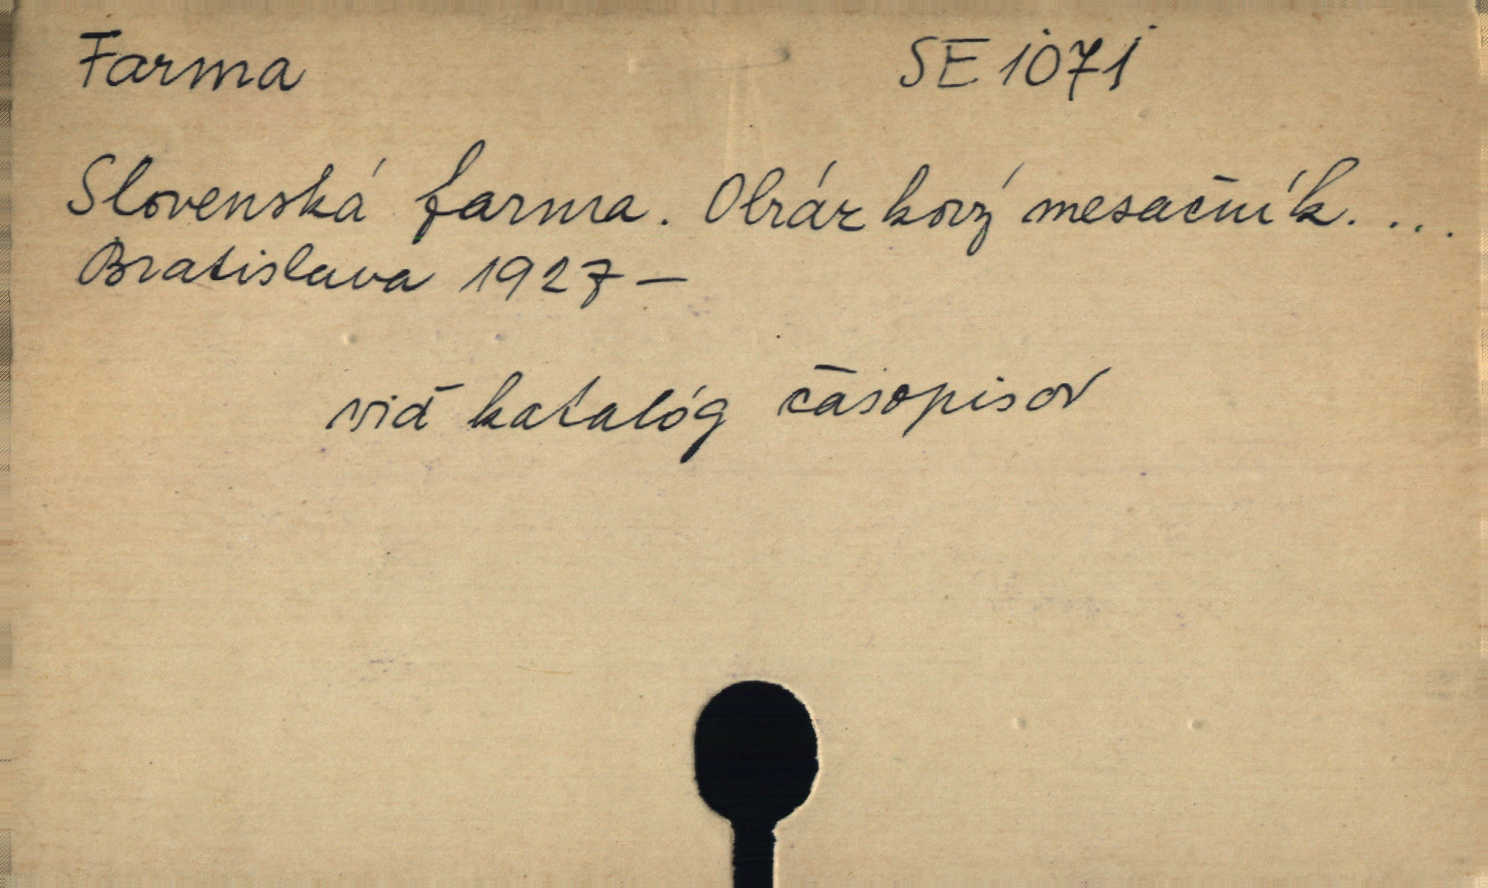 Farma SE 1071
Slovenská farma. Obrázkový mesačník. ...
Bratislava 1927 –
viď katalóg časopisov